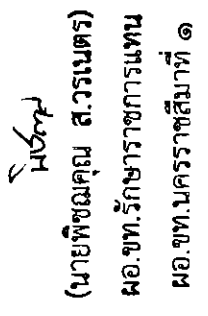 (นายพิชฌคุณ ส.วรเนตร)
ผอ.ขท.รักษาราชการแทน
ผอ.ขท.นครราชสีมาที่ ๑